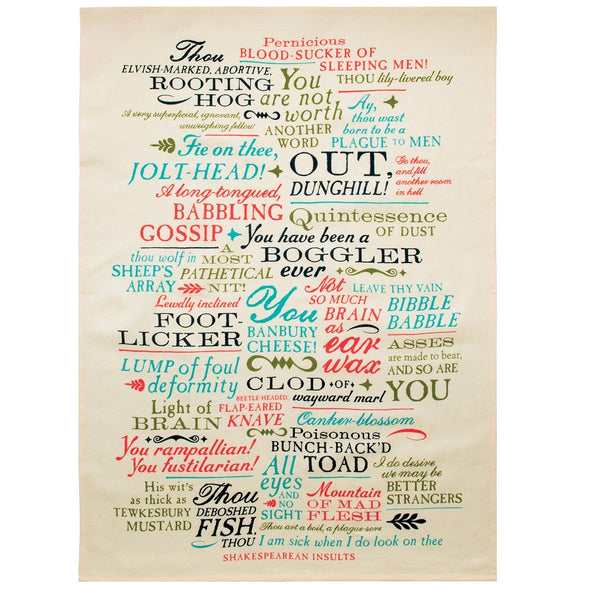 Pernicious
BLOOD-SUCKER OF
SLEEPING MEN!
Thou
ELVISH-MARKED, ABORTIVE,
ROOTING
HOG
You
are not
worth
ANOTHER
WORD
THOU lily-livered boy
A very superficial, ignorant,
unweighing fellow
Ay,
thou wast
born to be a
PLAGUE TO MEN
Fie on thee,
JOLT-HEAD!
OUT,
DUNGHILL!
Go thou,
and fill
another room
in hell
A long-tongued,
BABBLING
GOSSIP
Quintessence
OF DUST
You have been a
BOGGLER
ever
thou wolf in
SHEEP'S
ARRAY
A
MOST
PATHETICAL
NIT!
Lewdly inclined
FOOT-
LICKER
You
BANBURY
CHEESE!
Not
SO MUCH
BRAIN
as
ear
wax
LEAVE THY VAIN
BIBBLE
BABBLE
ASSES
are made to bear,
AND SO ARE
YOU
LUMP of foul
deformity
CLOD OF
wayward marl
Light of
BRAIN
BEETLE-HEADED,
FLAP-EARED
KNAVE
Canker-blossom
You rampallian!
You fustilarian!
Poisonous
BUNCH-BACK'D
TOAD
All
eyes
AND
NO
SIGHT
I do desire
we may be
BETTER
STRANGERS
His wit's
as thick as
TEWKESBURY
MUSTARD
Thou
DEBOSHED
FISH,
THOU
Mountain
OF MAD
FLESH
Thou art a boil, a plague-sore
I am sick when I do look on thee
SHAKESPEAREAN INSULTS